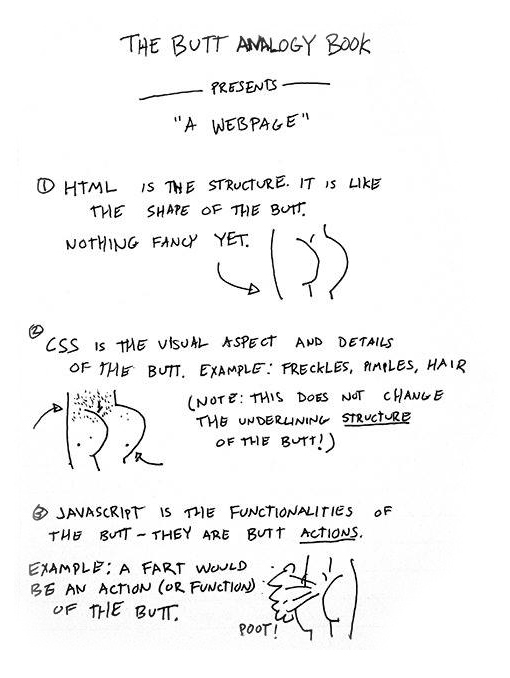 THE BUTT ANALOGY BOOK
PRESENTS
"A WEBPAGE"
① HTML IS THE STRUCTURE. IT IS LIKE
THE SHAPE OF THE BUTT.
NOTHING FANCY YET.
② CSS IS THE VISUAL ASPECT AND DETAILS
OF THE BUTT. EXAMPLE: FRECKLES, PIMPLES, HAIR
(NOTE: THIS DOES NOT CHANGE
THE UNDERLINING STRUCTURE
OF THE BUTT!)
③ JAVASCRIPT IS THE FUNCTIONALITIES OF
THE BUTT - THEY ARE BUTT ACTIONS.
EXAMPLE: A FART WOULD
BE AN ACTION (OR FUNCTION)
OF THE BUTT.
POOT!